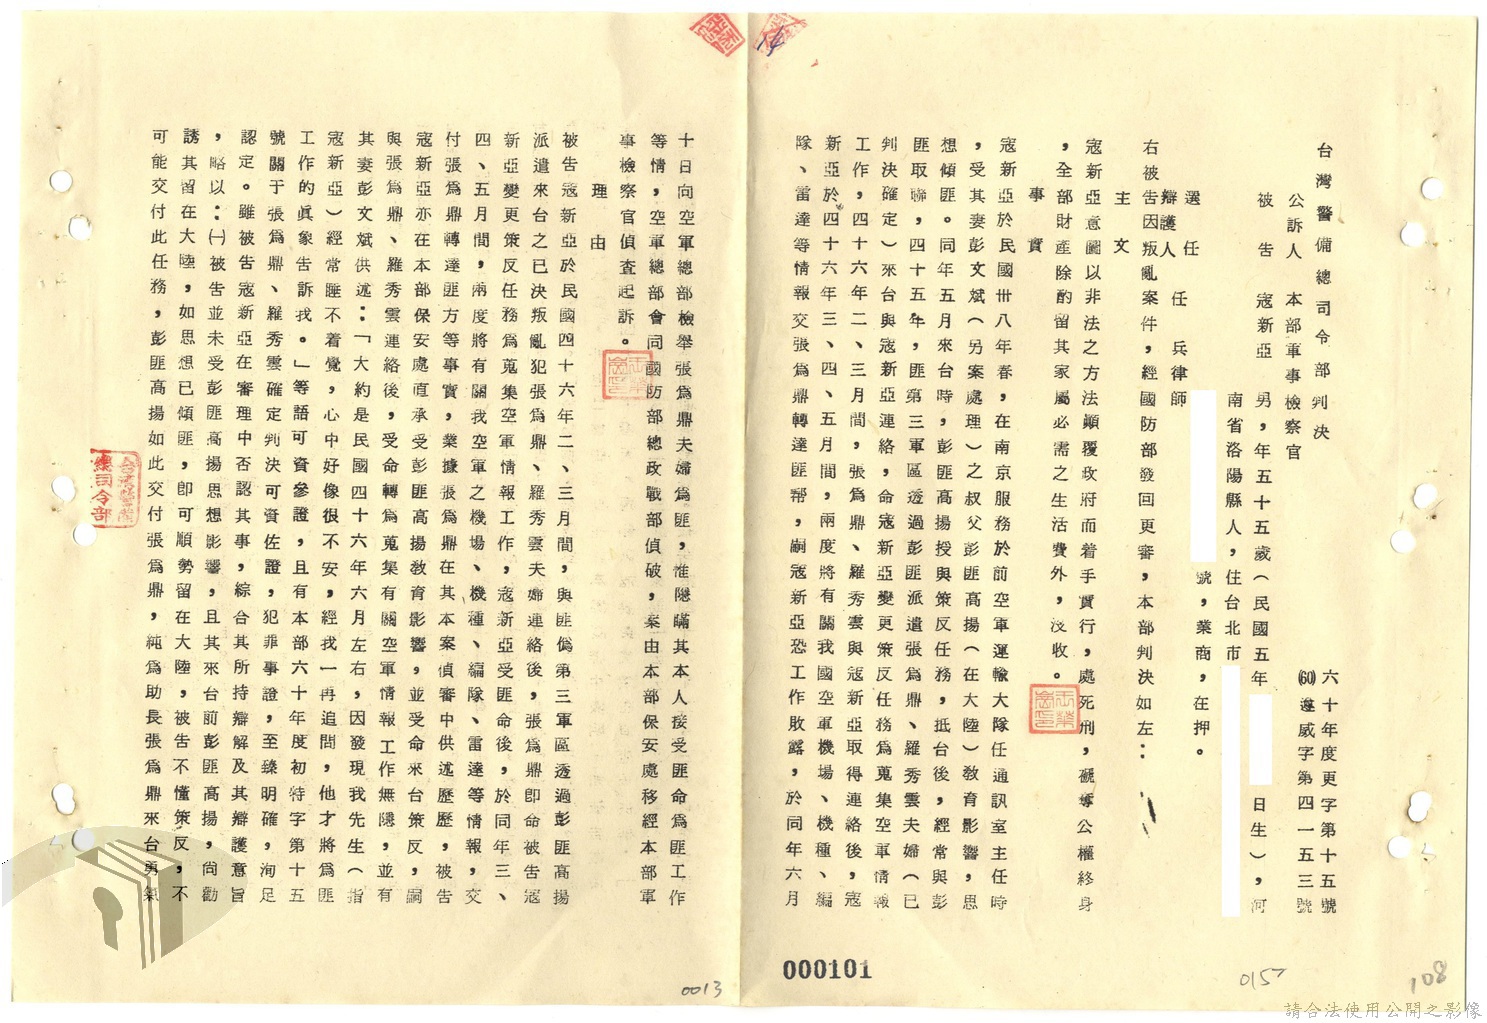 台灣警備總司令部判決
六十年度更字第十五號
(60)遵威字第四一五三號
公訴人　本部軍事檢察官
被告　寇新亞　男，年五十五歲（民國五年　日生），河
南省洛陽縣人，住台北市
號，業商，在押。
選任辯護人　任　兵律師
右被告因叛亂案件，經國防部發回更審，本部判決如左：
主文
寇新亞意圖以非法之方法顚覆政府而着手實行，處死刑，褫奪公權終身
，全部財產除酌留其家屬必需之生活費外，沒收。
事實
寇新亞於民國卅八年春，在南京服務於前空軍運輸大隊任通訊室主任時
，受其妻彭文斌（另案處理）之叔父彭匪高揚（在大陸）敎育影響，思
想傾匪。同年五月來台時，彭匪高揚授與策反任務，抵台後，經常與彭
匪取聯，四十五年，匪第三軍區透過彭匪派遣張爲鼎、羅秀雲夫婦（已
判決確定）來台與寇新亞連絡，命寇新亞變更策反任務爲蒐集空軍情報
工作，四十六年二、三月間，張爲鼎、羅秀雲與寇新亞取得連絡後，寇
新亞於四十六年三、四、五月間，兩度將有關我國空軍機場、機種、編
隊、雷達等情報交張爲鼎轉達匪幫，嗣寇新亞恐工作敗露，於同年六月
十日向空軍總部檢舉張爲鼎夫婦爲匪，惟隱瞞其本人接受匪命爲匪工作
等情，空軍總部會同國防部總政戰部偵破，案由本部保安處移經本部軍
事檢察官偵查起訴。
理由
被告寇新亞於民國四十六年二、三月間，與匪僞第三軍區透過彭匪高揚
派遣來台之已決叛亂犯張爲鼎、羅秀雲夫婦連絡後，張爲鼎卽命被告寇
新亞變更策反任務爲蒐集空軍情報工作，寇新亞受匪命後，於同年三、
四、五月間，兩度將有關我空軍之機場、機種、編隊、雷達等情報，交
付張爲鼎轉達匪方等事實，業據張爲鼎在其本案偵審中供述歷歷，被告
寇新亞亦在本部保安處直承受彭匪高揚敎育影響，並受命來台策反，嗣
與張爲鼎、羅秀雲連絡後，受命轉爲蒐集有關空軍情報工作無隱，並有
其妻彭文斌供述：「大約是民國四十六年六月左右，因發現我先生（指
寇新亞）經常睡不着覺，心中好像很不安，經我一再追問，他才將爲匪
工作的眞象告訴我。」等語可資參證，且有本部六十年度初特字第十五
號關于張爲鼎、羅秀雲確定判決可資佐證，犯罪事證，至臻明確，洵足
認定。雖被告寇新亞在審理中否認其事，綜合其所持辯解及其辯護意旨
，略以：㈠被告並未受彭匪高揚思想影響，且其來台前彭匪高揚，尚勸
誘其留在大陸，如思想已傾匪，卽可順勢留在大陸，被告不懂策反，不
可能交付此任務，彭匪高揚如此交付張爲鼎，純爲助長張爲鼎來台勇氣
台灣警備總司令部
000101
0013
015
108
14
請合法使用公開之影像